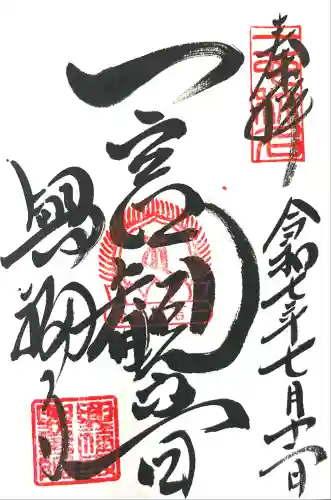 奉拝
令和七年七月十一日
一言観音
興福寺